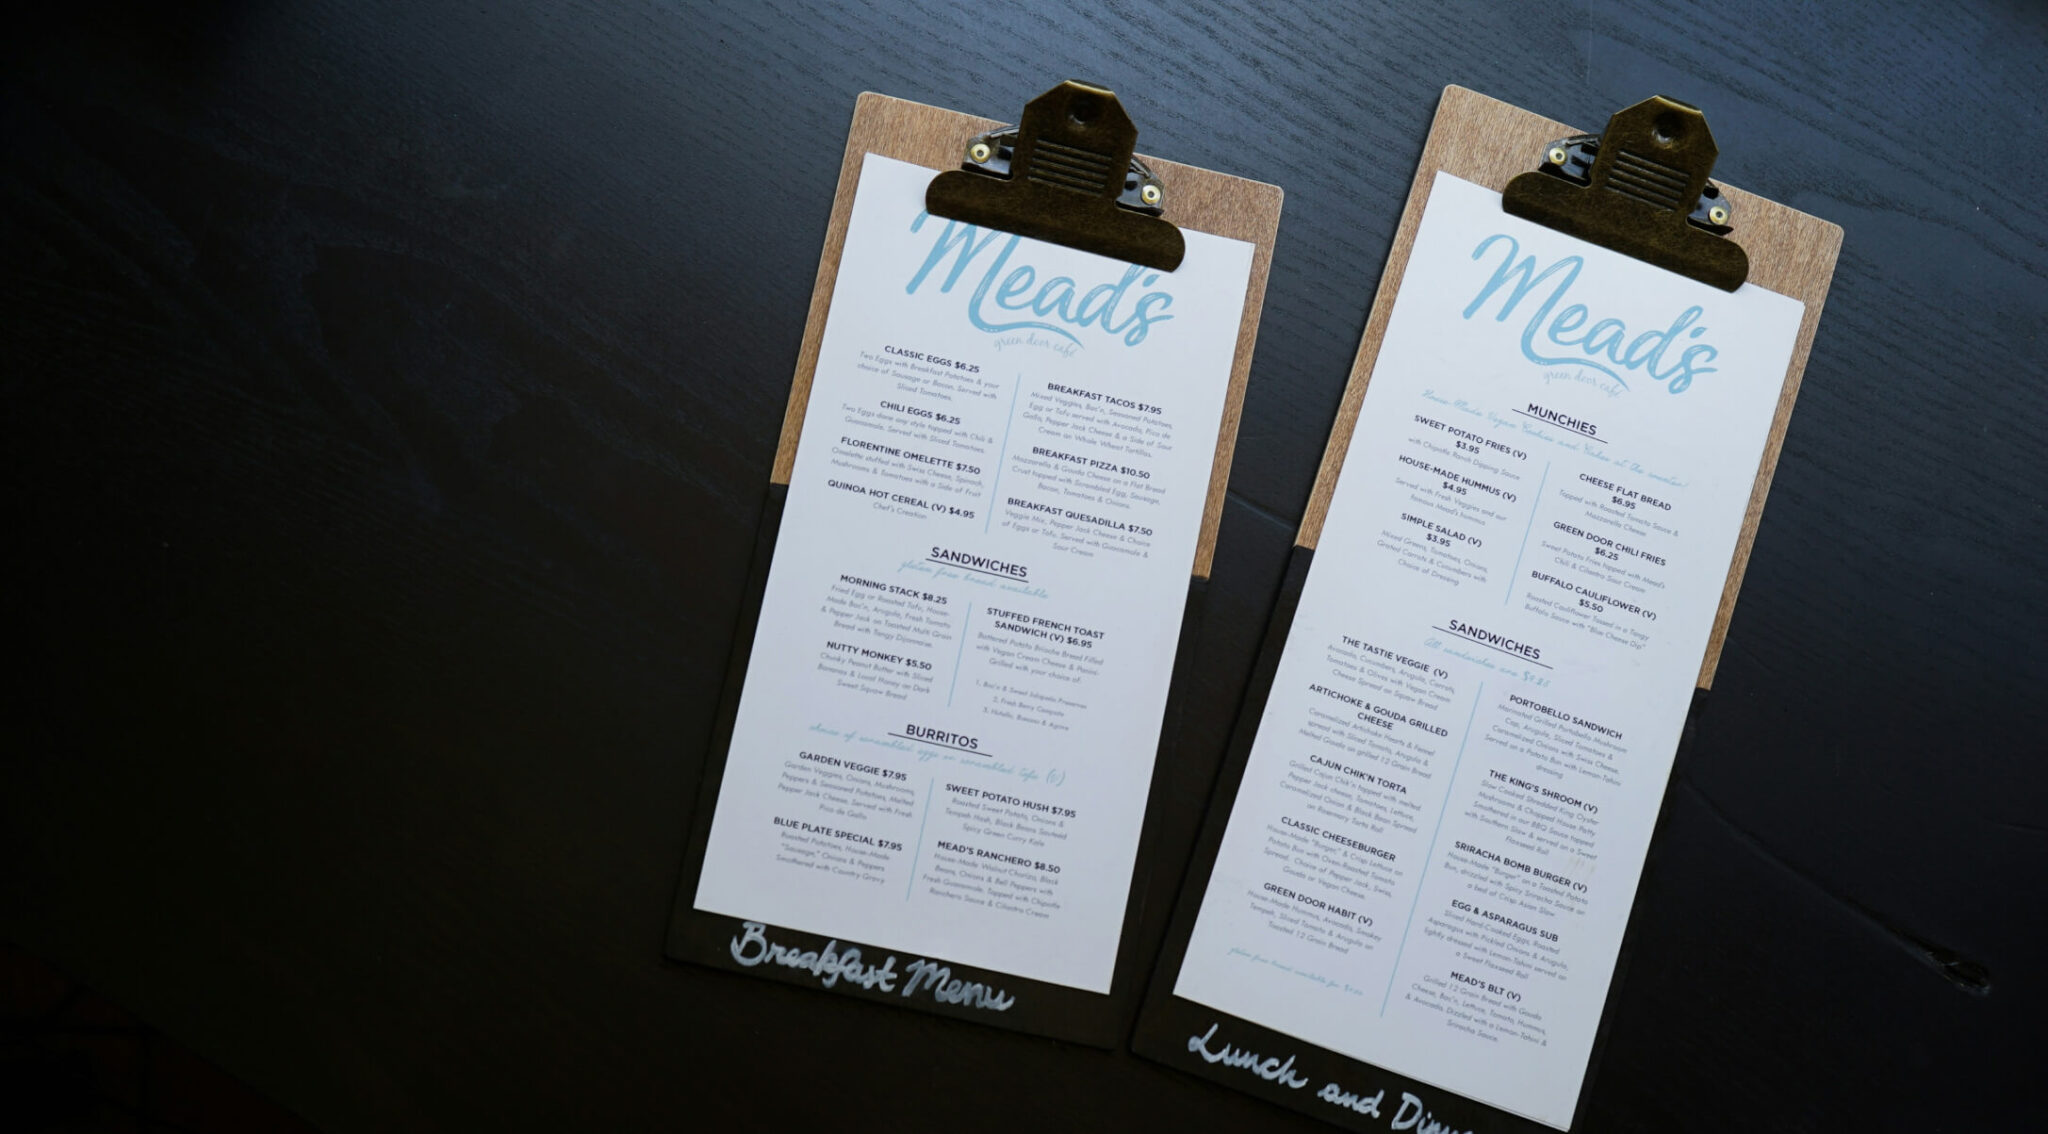 Mead's
green door café
CLASSIC EGGS $6.25
Two Eggs with Breakfast Potatoes & your
choice of Sausage or Bacon. Served with
Sliced Tomatoes.
CHILI EGGS $6.25
Two Eggs done any style topped with Chili &
Guacamole. Served with Sliced Tomatoes.
FLORENTINE OMELETTE $7.50
Omelette stuffed with Swiss Cheese, Spinach,
Mushrooms & Tomatoes with a Side of Fruit
QUINOA HOT CEREAL (V) $4.95
Chef's Creation
BREAKFAST TACOS $7.95
Mixed Veggies, Bac'n, Seasoned Potatoes,
Egg or Tofu served with Avocado, Pico de
Gallo, Pepper Jack Cheese & a Side of Sour
Cream on Whole Wheat Tortillas.
BREAKFAST PIZZA $10.50
Mozzarella & Gouda Cheese on a Flat Bread
Crust topped with Scrambled Egg, Sausage,
Bacon, Tomatoes & Onions.
BREAKFAST QUESADILLA $7.50
Veggie Mix, Pepper Jack Cheese & Choice
of Eggs or Tofu. Served with Guacamole &
Sour Cream
SANDWICHES
gluten free bread available
MORNING STACK $8.25
Fried Egg or Roasted Tofu, House-
Made Bac'n, Arugula, Fresh Tomato
& Pepper Jack on Toasted Multi Grain
Bread with Tangy Dijonnaise.
NUTTY MONKEY $5.50
Chunky Peanut Butter with Sliced
Bananas & Local Honey on Dark
Sweet Squaw Bread
STUFFED FRENCH TOAST
SANDWICH (V) $6.95
Buttered Potato Brioche Bread Filled
with Vegan Cream Cheese & Panini-
Grilled with your choice of:
1. Bac'n & Sweet Jalapeño Preserves
2. Fresh Berry Compote
3. Nutella, Banana & Agave
BURRITOS
choice of scrambled eggs or scrambled tofu (v)
GARDEN VEGGIE $7.95
Garden Veggies, Onions, Mushrooms,
Peppers & Seasoned Potatoes, Melted
Pepper Jack Cheese. Served with Fresh
Pico de Gallo
BLUE PLATE SPECIAL $7.95
Roasted Potatoes, House-Made
"Sausage," Onions & Peppers
Smothered with Country Gravy
SWEET POTATO HUSH $7.95
Roasted Sweet Potato, Onions &
Tempeh Hash, Black Beans Sauteed
Spicy Green Curry Kale
MEAD'S RANCHERO $8.50
House-Made Walnut Chorizo, Black
Beans, Onions & Bell Peppers with
Fresh Guacamole. Topped with Chipotle
Ranchero Sauce & Cilantro Cream
Breakfast Menu
Mead's
green door café
MUNCHIES
House-Made Vegan Cookies and Cakes at the counter!
SWEET POTATO FRIES (V)
$3.95
with Chipotle Ranch Dipping Sauce
HOUSE-MADE HUMMUS (V)
$4.95
Served with Fresh Veggies and our
famous Mead's hummus
SIMPLE SALAD (V)
$3.95
Mixed Greens, Tomatoes, Onions,
Grated Carrots & Cucumbers with
Choice of Dressing
CHEESE FLAT BREAD
$6.95
Topped with Roasted Tomato Sauce &
Mozzarella Cheese
GREEN DOOR CHILI FRIES
$6.25
Sweet Potato Fries topped with Mead's
Chili & Cilantro Sour Cream
BUFFALO CAULIFLOWER (V)
$5.50
Roasted Cauliflower Tossed in a Tangy
Buffalo Sauce with "Blue Cheese Dip"
SANDWICHES
All sandwiches are $9.25
THE TASTIE VEGGIE (V)
Avocado, Cucumbers, Arugula, Carrots,
Tomatoes & Olives with Vegan Cream
Cheese Spread on Squaw Bread
ARTICHOKE & GOUDA GRILLED
CHEESE
Caramelized Artichoke Hearts & Fennel
spread with Sliced Tomato, Arugula &
Melted Gouda on grilled 12 Grain Bread
CAJUN CHIK'N TORTA
Grilled Cajun Chik'n topped with melted
Pepper Jack cheese, Tomatoes, Lettuce,
Caramelized Onion & Black Bean Spread
on Rosemary Torta Roll
CLASSIC CHEESEBURGER
House-Made "Burger" & Crisp Lettuce on
Potato Bun with Oven-Roasted Tomato
Spread. Choice of Pepper Jack, Swiss,
Gouda or Vegan Cheese.
GREEN DOOR HABIT (V)
House-Made Hummus, Avocado, Smokey
Tempeh, Sliced Tomato & Arugula on
Toasted 12 Grain Bread
PORTOBELLO SANDWICH
Marinated Grilled Portobello Mushroom
Cap, Arugula, Sliced Tomatoes &
Caramelized Onions with Swiss Cheese.
Served on a Potato Bun with Lemon-Tahini
dressing
THE KING'S SHROOM (V)
Slow Cooked Shredded King Oyster
Mushrooms & Chopped House Patty
Smothered in our BBQ Sauce topped
with Southern Slaw & served on a Sweet
Flaxseed Roll
SRIRACHA BOMB BURGER (V)
House-Made "Burger" on a Toasted Potato
Bun, drizzled with Spicy Sriracha Sauce on
a bed of Crisp Asian Slaw
EGG & ASPARAGUS SUB
Sliced Hard-Cooked Eggs, Roasted
Asparagus with Pickled Onions & Arugula,
lightly dressed with Lemon-Tahini served on
a Sweet Flaxseed Roll
MEAD'S BLT (V)
Grilled 12 Grain Bread with Gouda
Cheese, Bac'n, Lettuce, Tomato, Hummus,
& Avocado. Dizzled with a Lemon-Tahini &
Sriracha Sauce.
gluten free bread available for
Lunch and